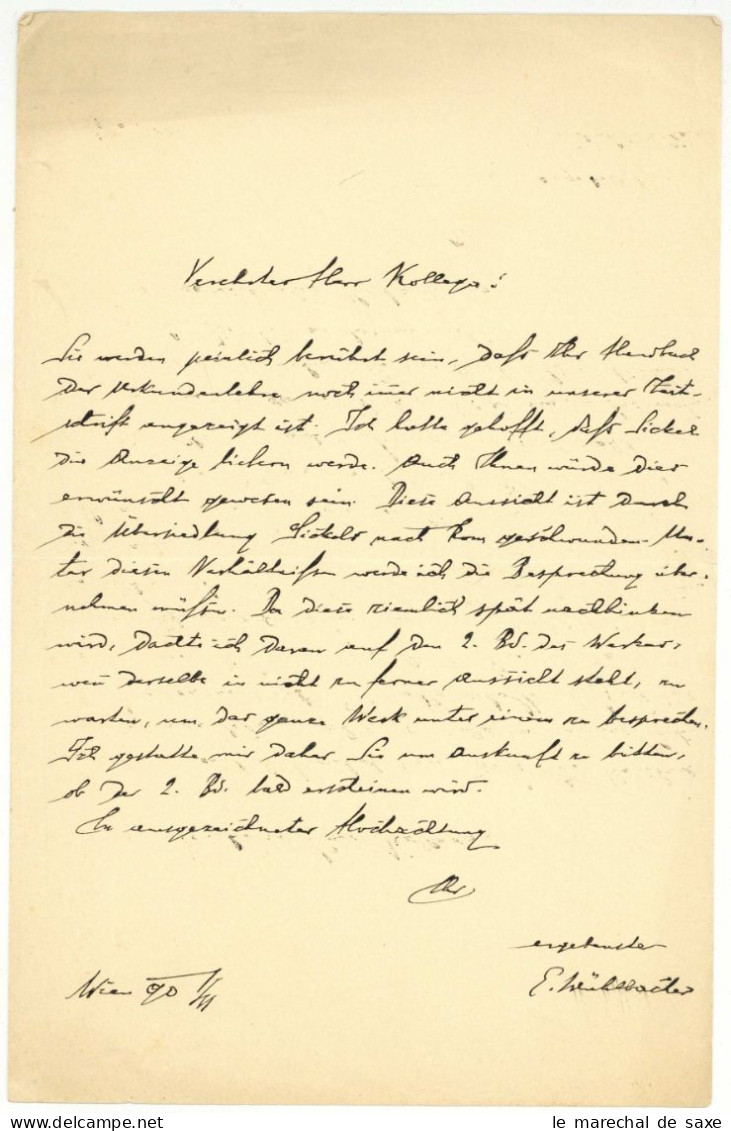 Verehrter Herr Kollege!
Sie werden peinlich berührt sein, daß Ihr Handbuch
der Urkundenlehre noch imer nicht in unserer Zeit-
schrift angezeigt ist. Ich hatte gehofft, daß Sickel
die Anzeige liefern werde. Auch Ihnen würde dies
erwünscht gewesen sein. Diese Aussicht ist durch
die Übersiedlung Sickels nach Rom geschwunden. Un-
ter diesen Verhältnissen werde ich die Besprechung über-
nehmen müssen. Da diese ziemlich spät nachhinken
wird, dachte ich daran auf den 2. Bd. des Werkes,
wen derselbe in nicht zu ferner Aussicht steht, zu
warten, um das ganze Werk unter einem zu besprechen.
Ich gestatte mir daher Sie um Auskunft zu bitten,
ob der 2. Bd. bald erscheinen wird.
In ausgezeichneter Hochachtung
Ihr
ergebenster
Wien 90 E. Mühlbacher
le marechal de saxe